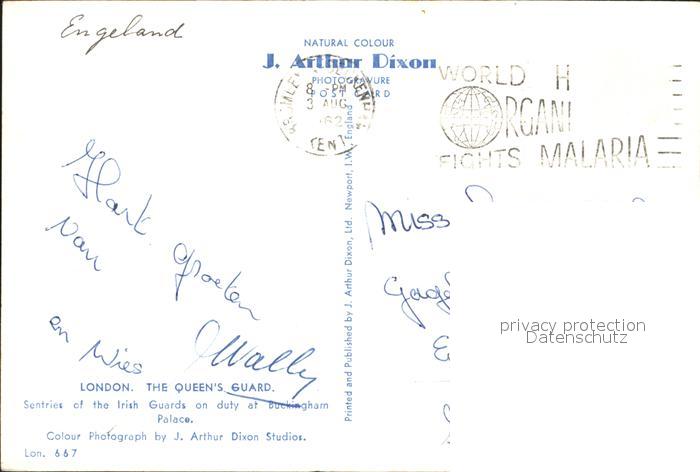 Engeland
NATURAL COLOUR
J. Arthur Dixon
PHOTOGRAVURE
POST CARD
8 - PM
3 AUG
1962
KENT
WORLD H
ORGANI
FIGHTS MALARIA
Hart. groeten
van
Wally
en Wies
Miss
LONDON. THE QUEEN'S GUARD.
Sentries of the Irish Guards on duty at Buckingham
Palace.
Colour Photograph by J. Arthur Dixon Studios.
Lon. 667
Printed and Published by J. Arthur Dixon, Ltd., Newport, I.W., England
privacy protection
Datenschutz